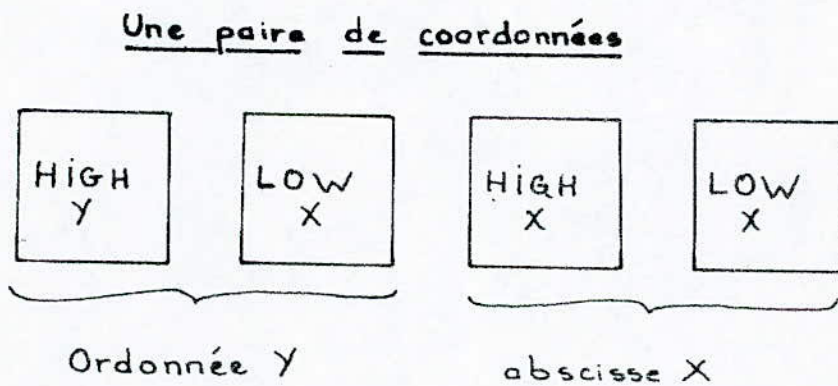 Une paire de coordonnées
HIGH LOW HIGH LOW
Y X X X
Ordonnée Y abscisse X